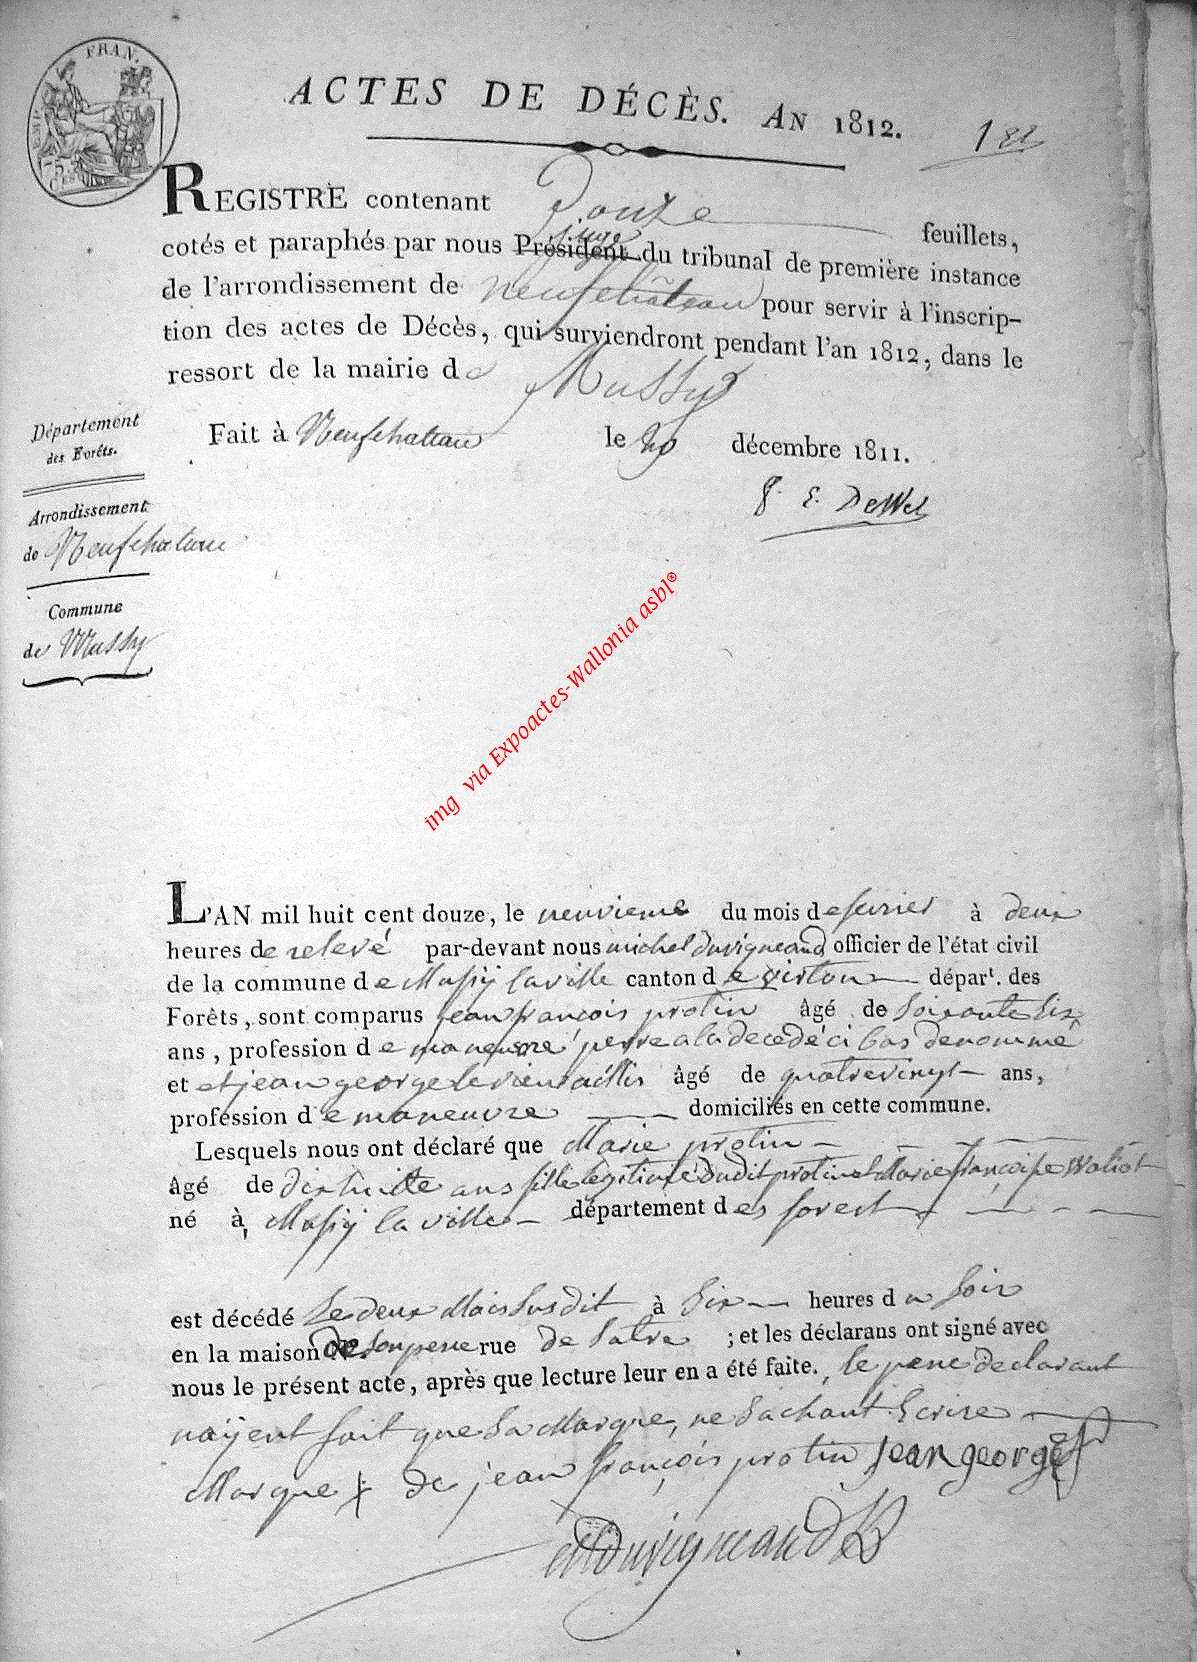 EMP. FRAN.
75
CES
ACTES DE DÉCÈS. AN 1812.
1er
REGISTRE contenant Douze feuillets,
juge
cotés et paraphés par nous Président du tribunal de première instance
de l'arrondissement de neufchâteau pour servir à l'inscrip-
tion des actes de Décès, qui surviendront pendant l'an 1812, dans le
ressort de la mairie de Mussy
Fait à Neufchateau le 20 décembre 1811.
Dewez
Département
des Forêts.
Arrondissement
de Neufchateau
Commune
de Mussy
img via Expoactes-Wallonia asbl®
L'AN mil huit cent douze, le neuvieme du mois de fevrier à deux
heures de relevé par-devant nous michel duvigneaud officier de l'état civil
de la commune de Mussÿ la ville canton de virton départ. des
Forêts, sont comparus jean françois protin âgé de soixante six
ans, profession de maneuvre perre a la decedé ci bas denommé
et et jean george âgé de quatrevingt ans,
profession de maneuvre domiciliés en cette commune.
Lesquels nous ont déclaré que Marie protin
âgé de dixhuite ans fille legitime dudit protin et Marie françoise Waliot
né à Mussÿ la ville département des forest
est décédé le deux Mois susdit à six heures du soir
en la maison de son perre rue de ; et les déclarans ont signé avec
nous le présent acte, après que lecture leur en a été faite., le perre declarant
naÿent fait que sa Marque, ne sachant Ecrire
Marque X de jean françois protin jean george
MDuvigneaud